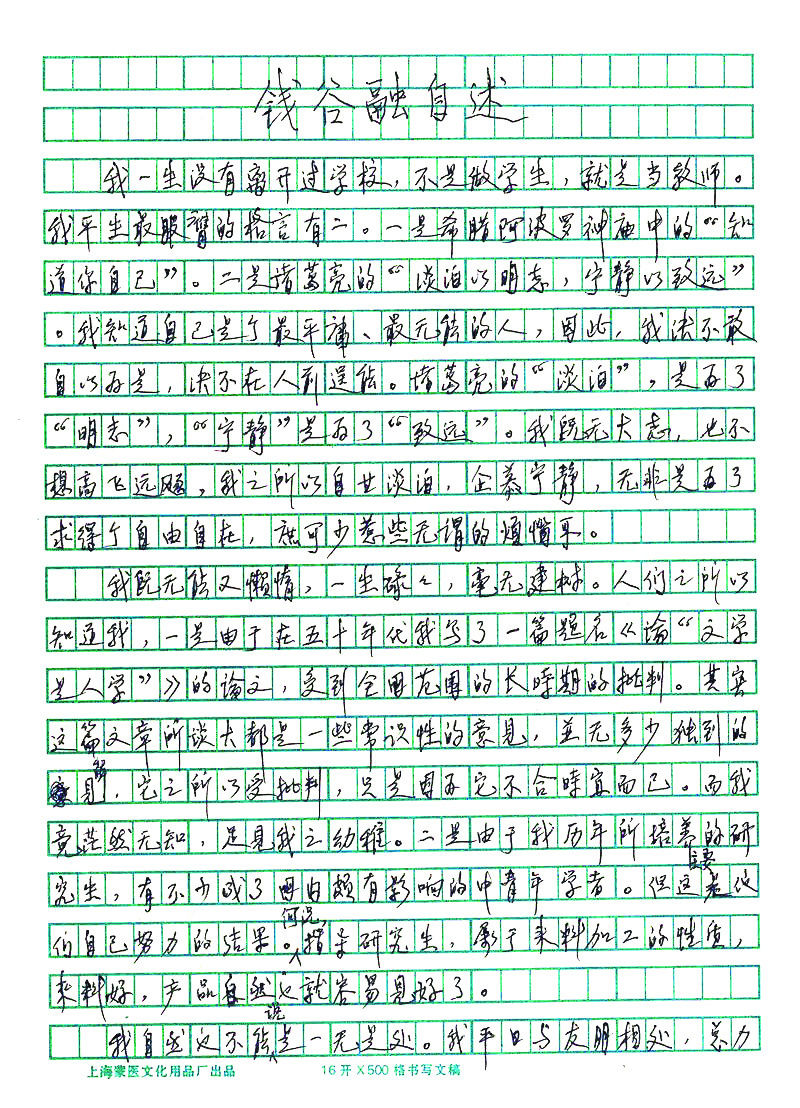 钱谷融自述
我一生没有离开过学校，不是做学生，就是当教师。
我平生最服膺的格言有二。一是希腊阿波罗神庙中的“知
道你自己”。二是诸葛亮的“淡泊以明志，宁静以致远”
。我知道自己是个最平庸、最无能的人，因此，我决不敢
自以为是，决不在人前逞能。诸葛亮的“淡泊”，是为了
“明志”，“宁静”是为了“致远”。我既无大志，也不
想高飞远飏，我之所以自甘淡泊，企慕宁静，无非是为了
求得个自由自在，庶可少惹些无谓的烦恼耳。
我既无能又懒惰，一生碌々，毫无建树。人们之所以
知道我，一是由于在五十年代我写了一篇题名《论“文学
是人学”》的论文，受到全国范围的长時期的批判。其实
这篇文章所谈大都是一些常识性的意见，並无多少独到的
见解，它之所以受批判，只是因为它不合時宜而已。而我
竟茫然无知，足见我之幼稚。二是由于我历年所培养的研
究生，有不少成了国内颇有影响的中青年学者。但这主要是他
们自己努力的结果。何况，指导研究生，属于来料加工的性质，
来料好，产品自然也就容易见好了。
我自然也不能说是一无是处。我平日与友朋相处，总力
上海蒙医文化用品厂出品
16开X500格书写文稿